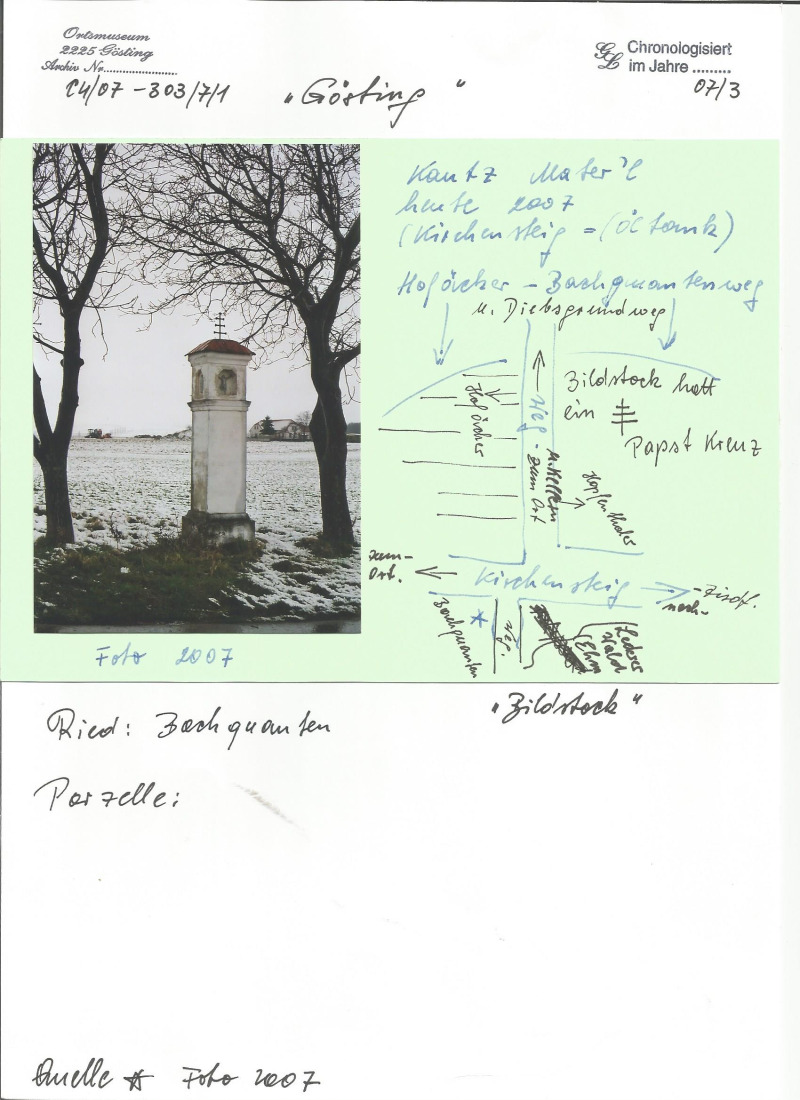 Ortsmuseum
2225 Gösting
Archiv Nr.
C4/07 - 303/7/1
„Gösting"
GL Chronologisiert
im Jahre
07/3
Kautz Mater'l
heute 2007
(Kirchensteig = (Öltank)
Hofäcker - Bachquantenweg
u. Diebsgrundweg
Bildstock hatt
ein
Papst Kreuz
Hofäcker
Weg -
u. Kellern
zum Ort
zum-
Ort.
Kirchensteig
nach-
Zisd.
Bachquanten
Weg.
Lederer
Wald
Ehm
Foto 2007
„Bildstock"
Ried: Bachquanten
Parzelle:
Quelle Foto 2007